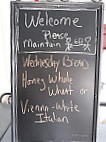 Welcome
Please
Maintain 6
Wednesday Bread
Honey Whole
Wheat or
Vienna-White
Italian